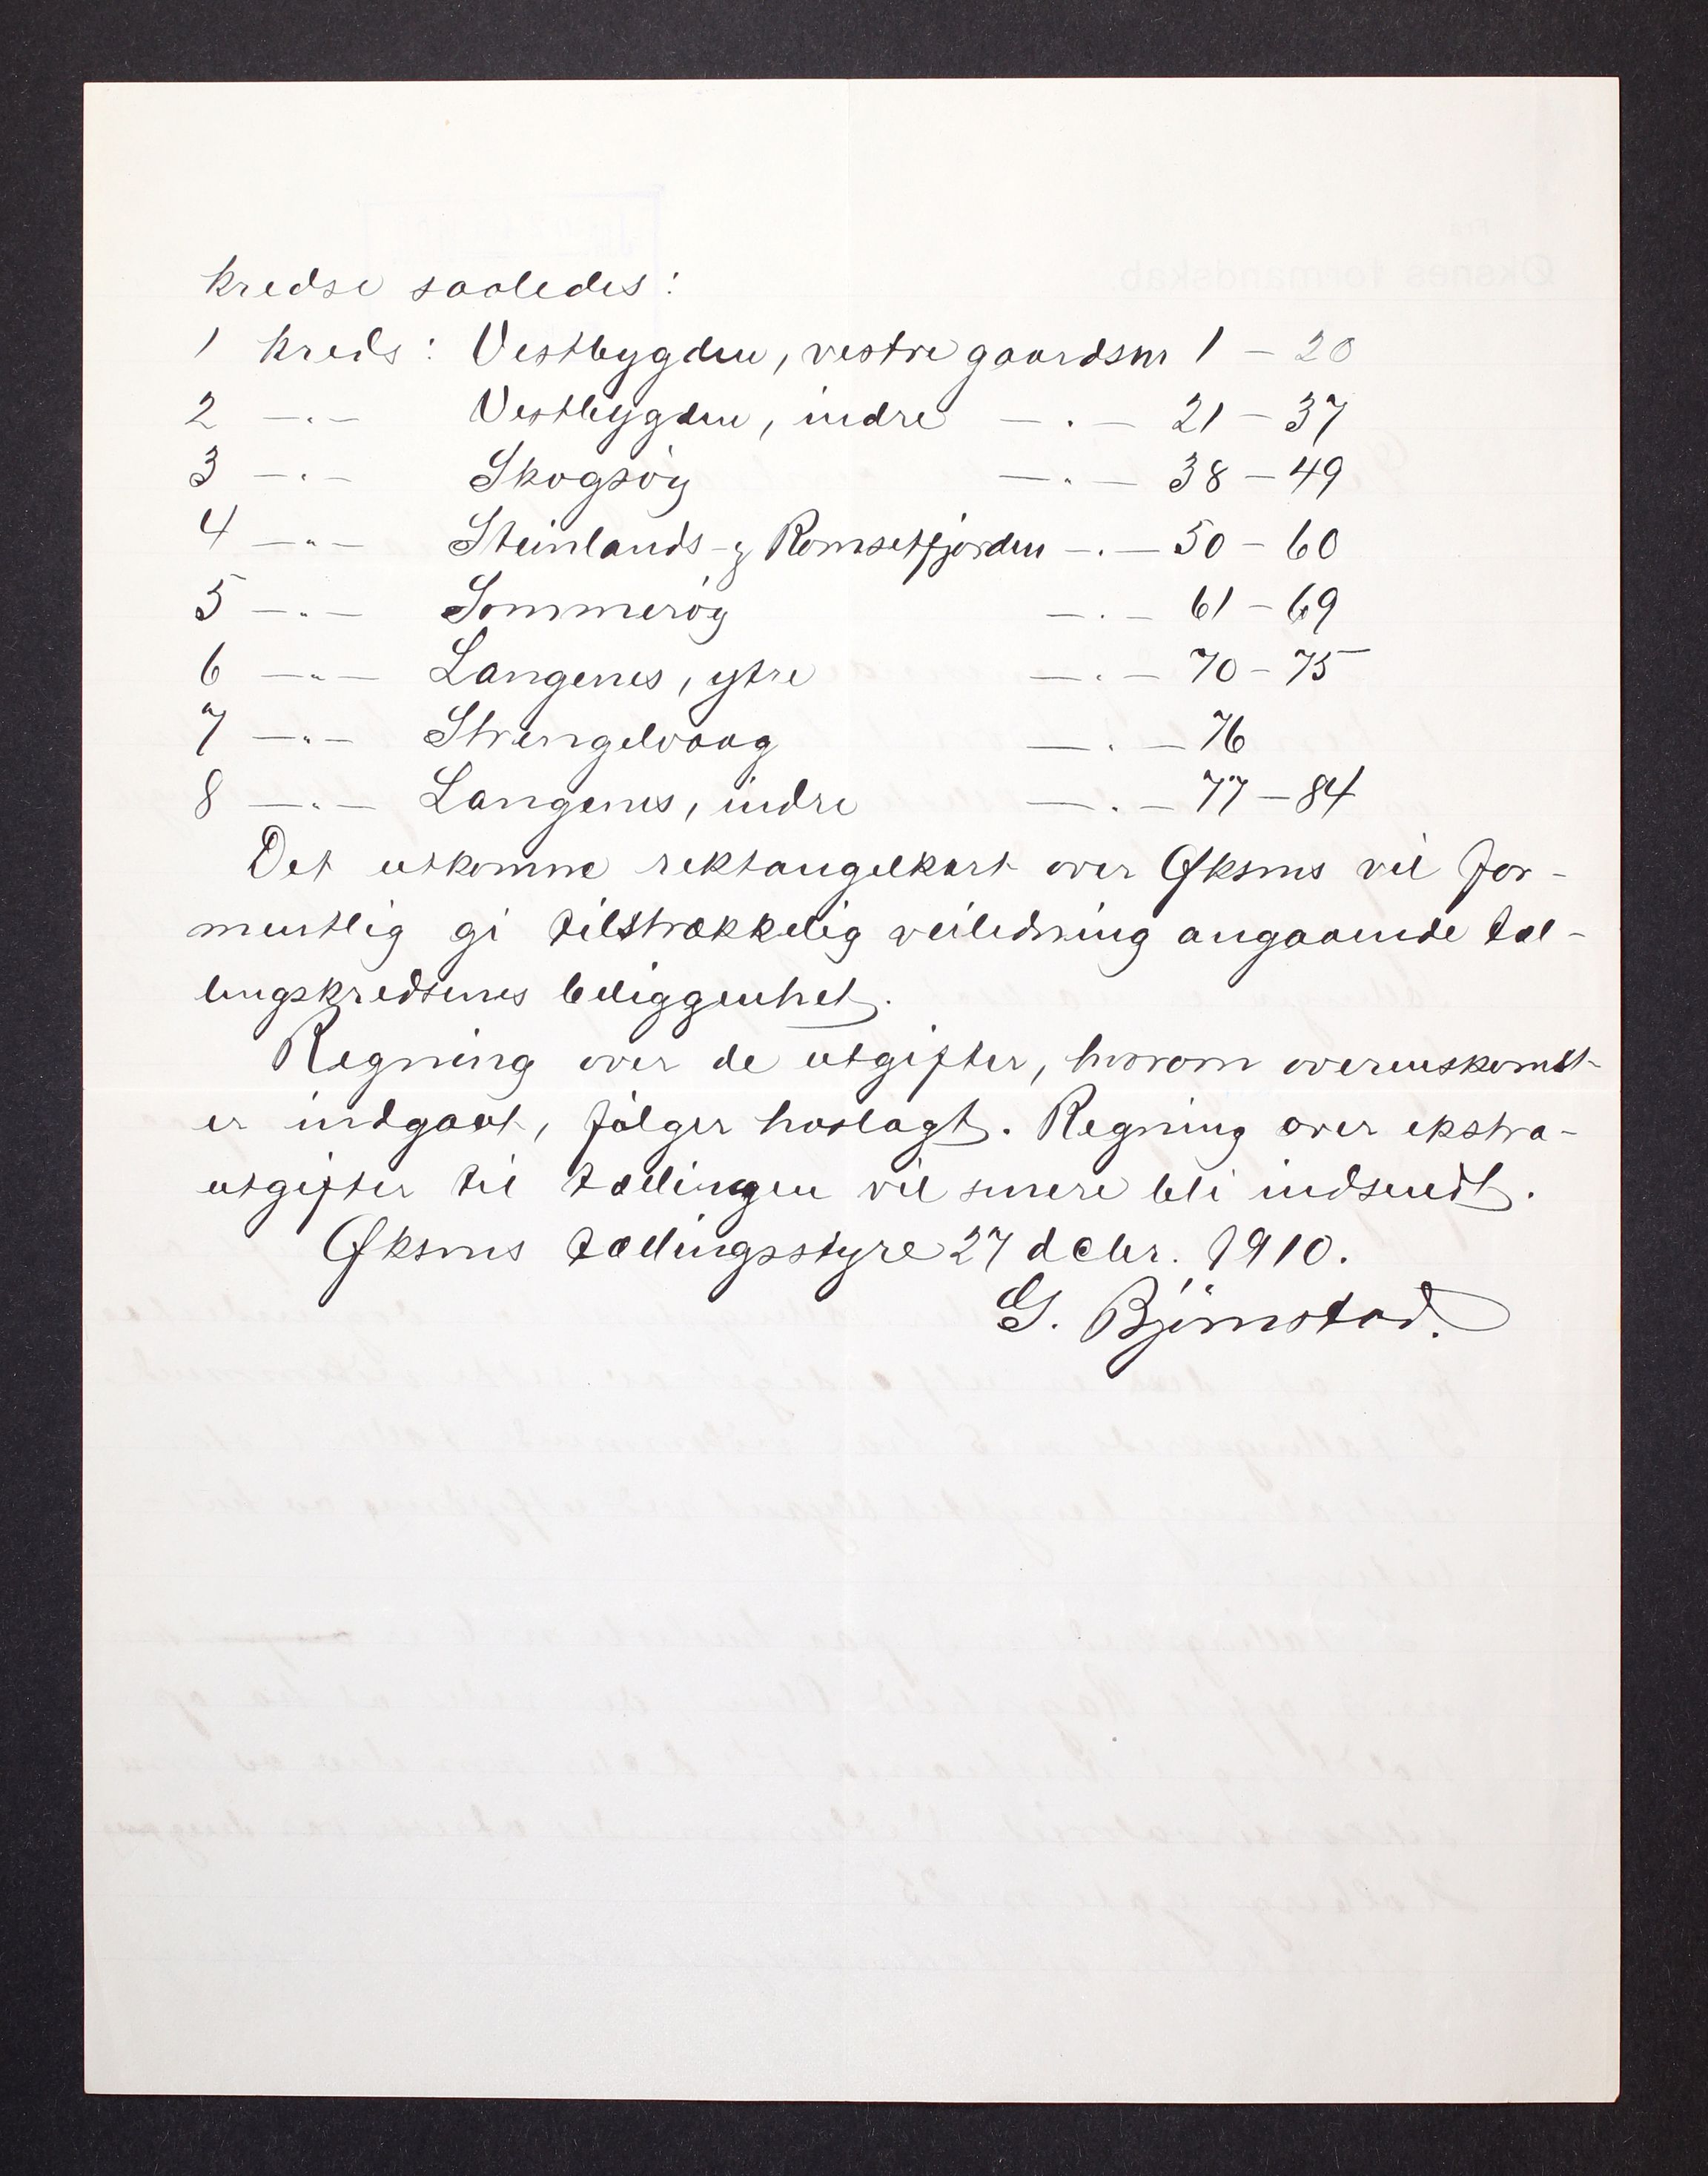 kredse saaledes:
1 kreds: Vestbygden, vestre gaardsnr 1 – 20
2 —„— Vestbygden, indre —„— 21 – 37
3 —„— Skogsöy —„— 38 – 49
4 —„— Steinlands- & Romsetfjorden —„— 50 – 60
5 —„— Sommeröy —„— 61 – 69
6 —„— Langenes, ytre —„— 70 – 75
7 —„— Strengelvaag —„— 76
8 —„— Langenes, indre —„— 77 – 84
Det utkomne rektangelkart over Øksnes vil for-
mentlig gi tilstrækkelig veiledning angaaende tæl-
lingskredsenes beliggenhet.
Regning over de utgifter, hvorom overenskomst
er indgaat, fölger hoslagt. Regning over ekstra-
utgifter til tællingen vil senere bli indsendt.
Øksnes tællingsstyre 27 decbr. 1910.
G. Björnstad.